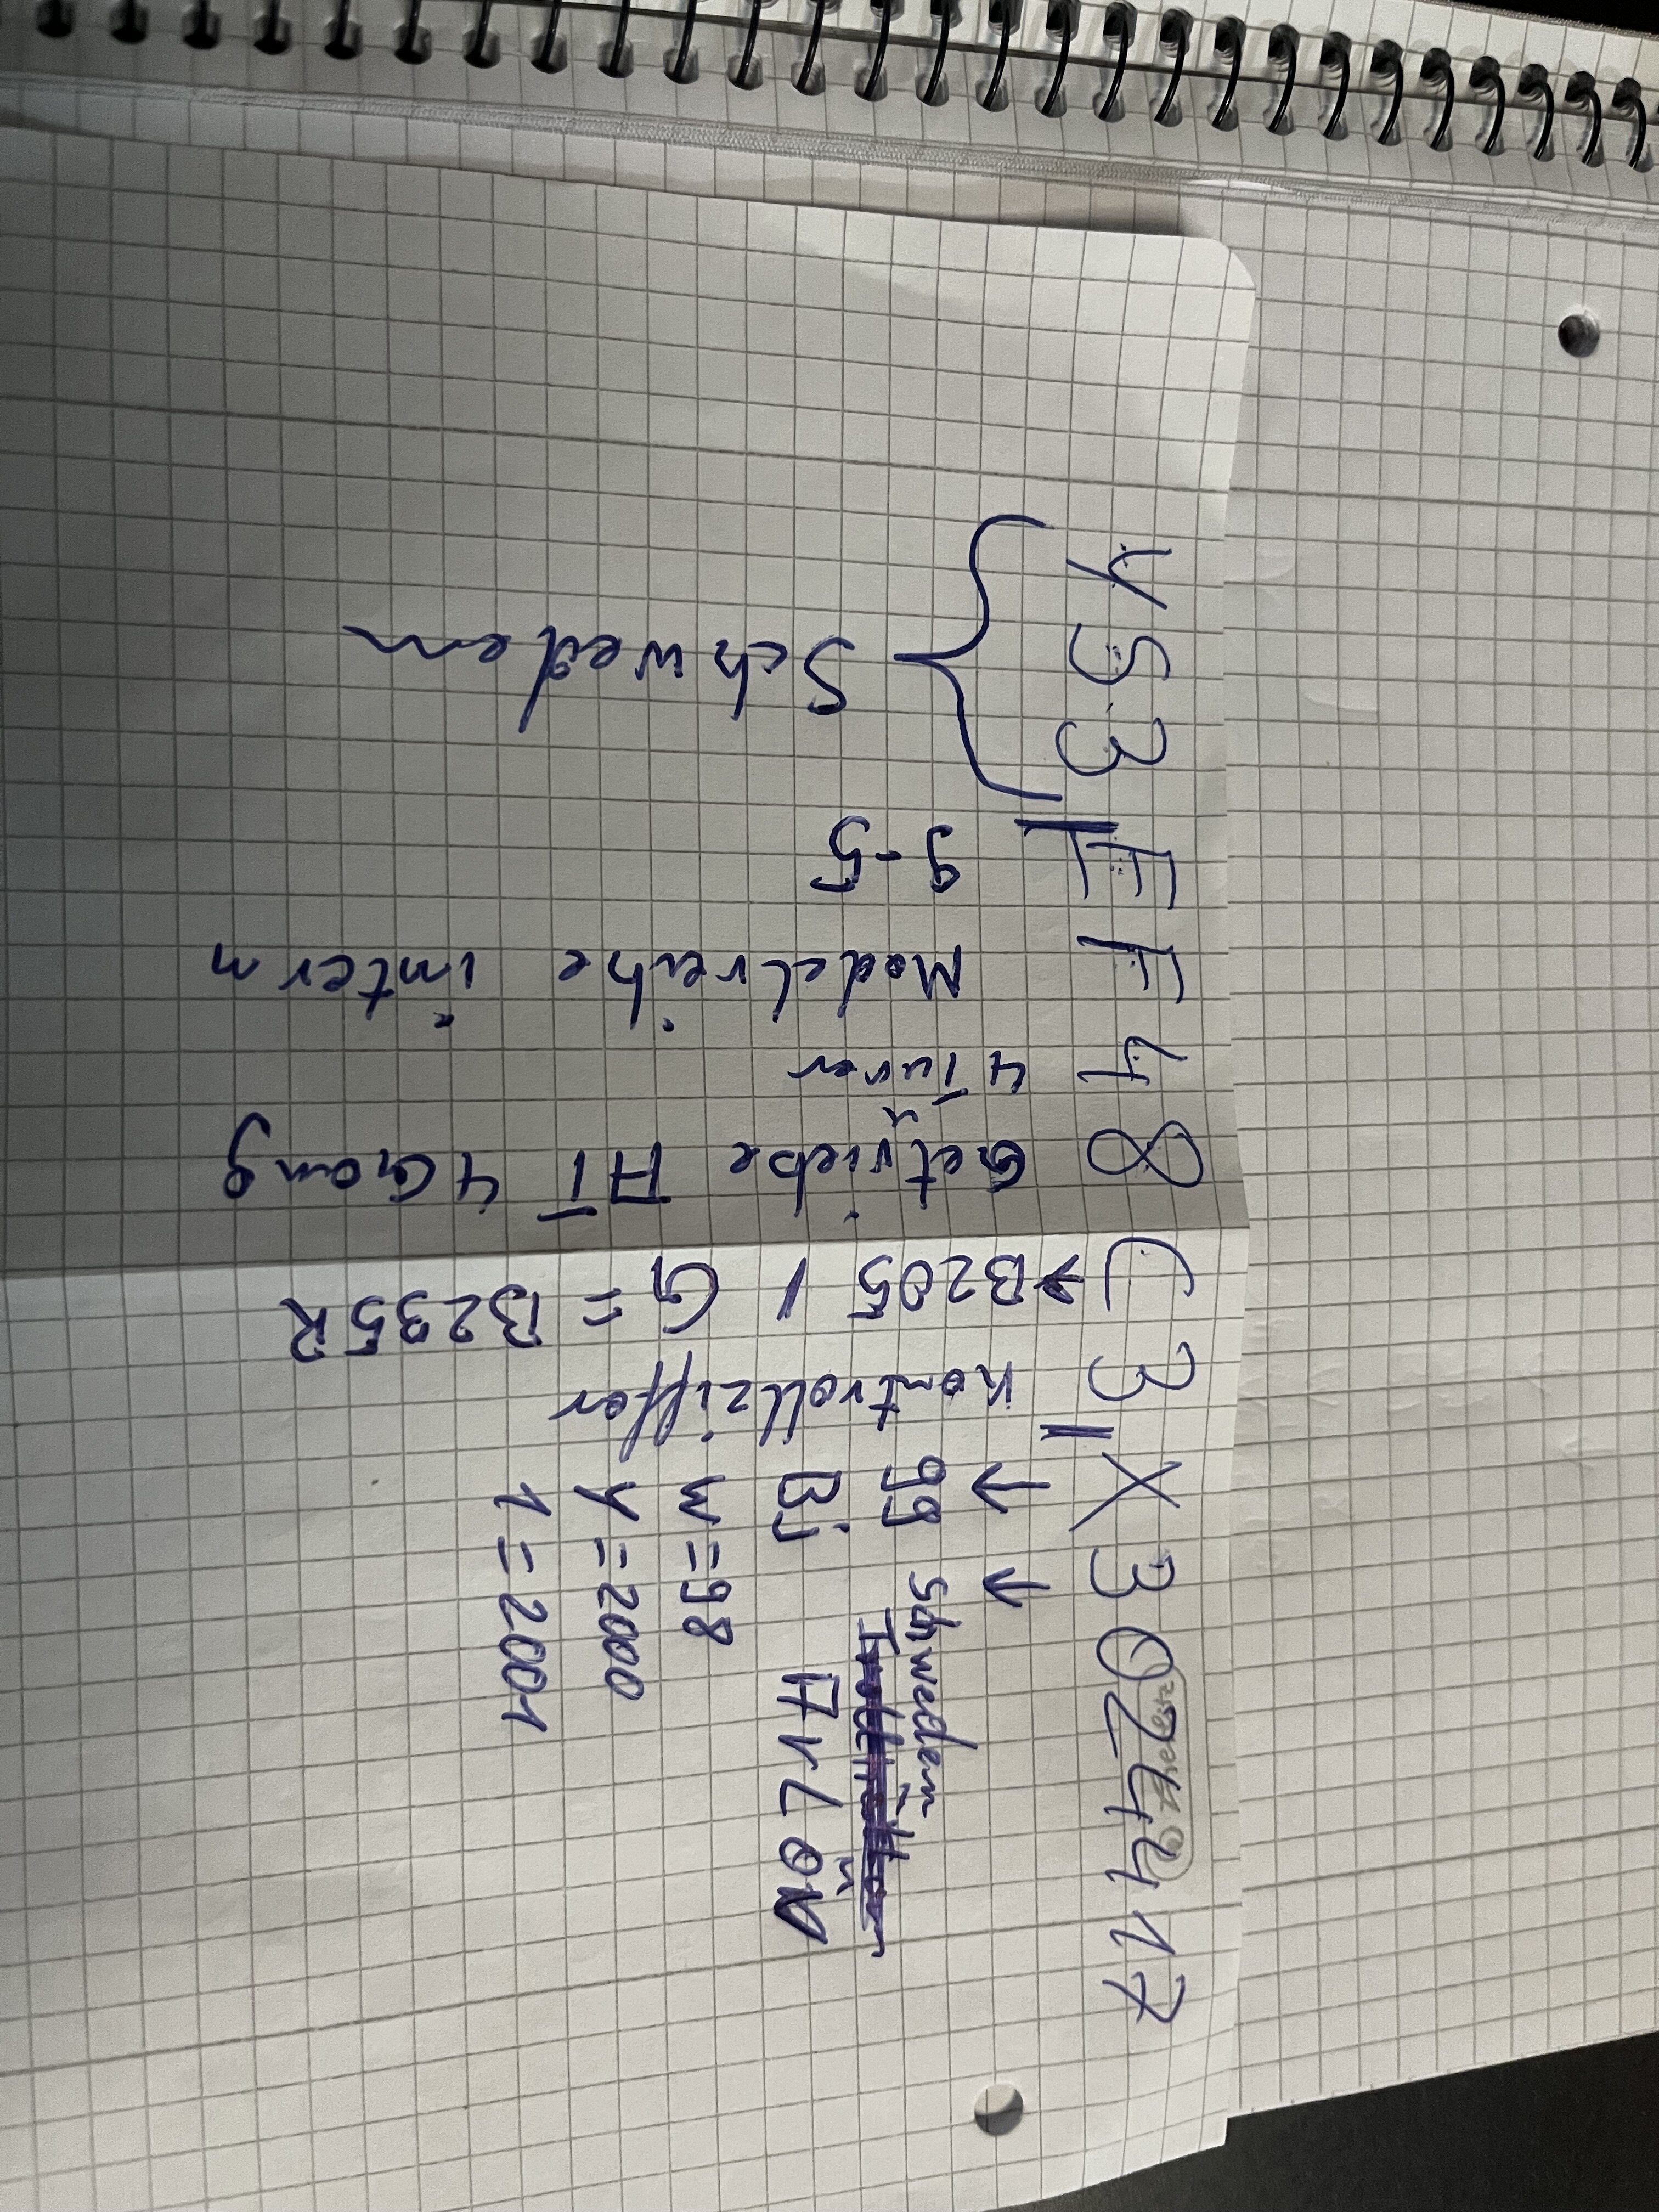 YS3EF48C3X3024417
Schweden
9-5
Modelreihe intern
4 Türer
Getriebe AT 4Gang
→B205 / G = B235R
Kontrollziffer
↓
99
Bj
W = 98
Y = 2000
1 = 2001
↓
Schweden
ArLöv